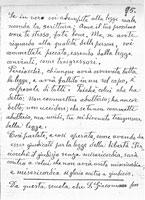 95.
Se in vero voi adempite alla legge reale
secondo la scrittura: Ama il tuo prossimo
come te stesso, fate bene. Ma, se avete
riguardo alla qualità delle persone, voi
commettete peccato, essendo dalla legge
convinti, come trasgressori.
Perciocchè, chiunque avrà osservata tutta
la legge, ed avrà fallito in un sol capo, è
colpevole di tutti. Poichè colui che ha
detto: Non commettere adulterio; ha ancor
detto: Non uccidere; che se tu non commetti
adulterio, ma uccidi, tu sei divenuto trasgressore
della legge.
Così parlate, e così operate, come avendo da
esser giudicati per la legge della libertà. Per-
ciocchè il giudizio senza misericordia, sarà
contro a colui, che non avrà usata misericordia
e misericordia si gloria contro a giudicio.
Da questa scuola, che S. Giacomo